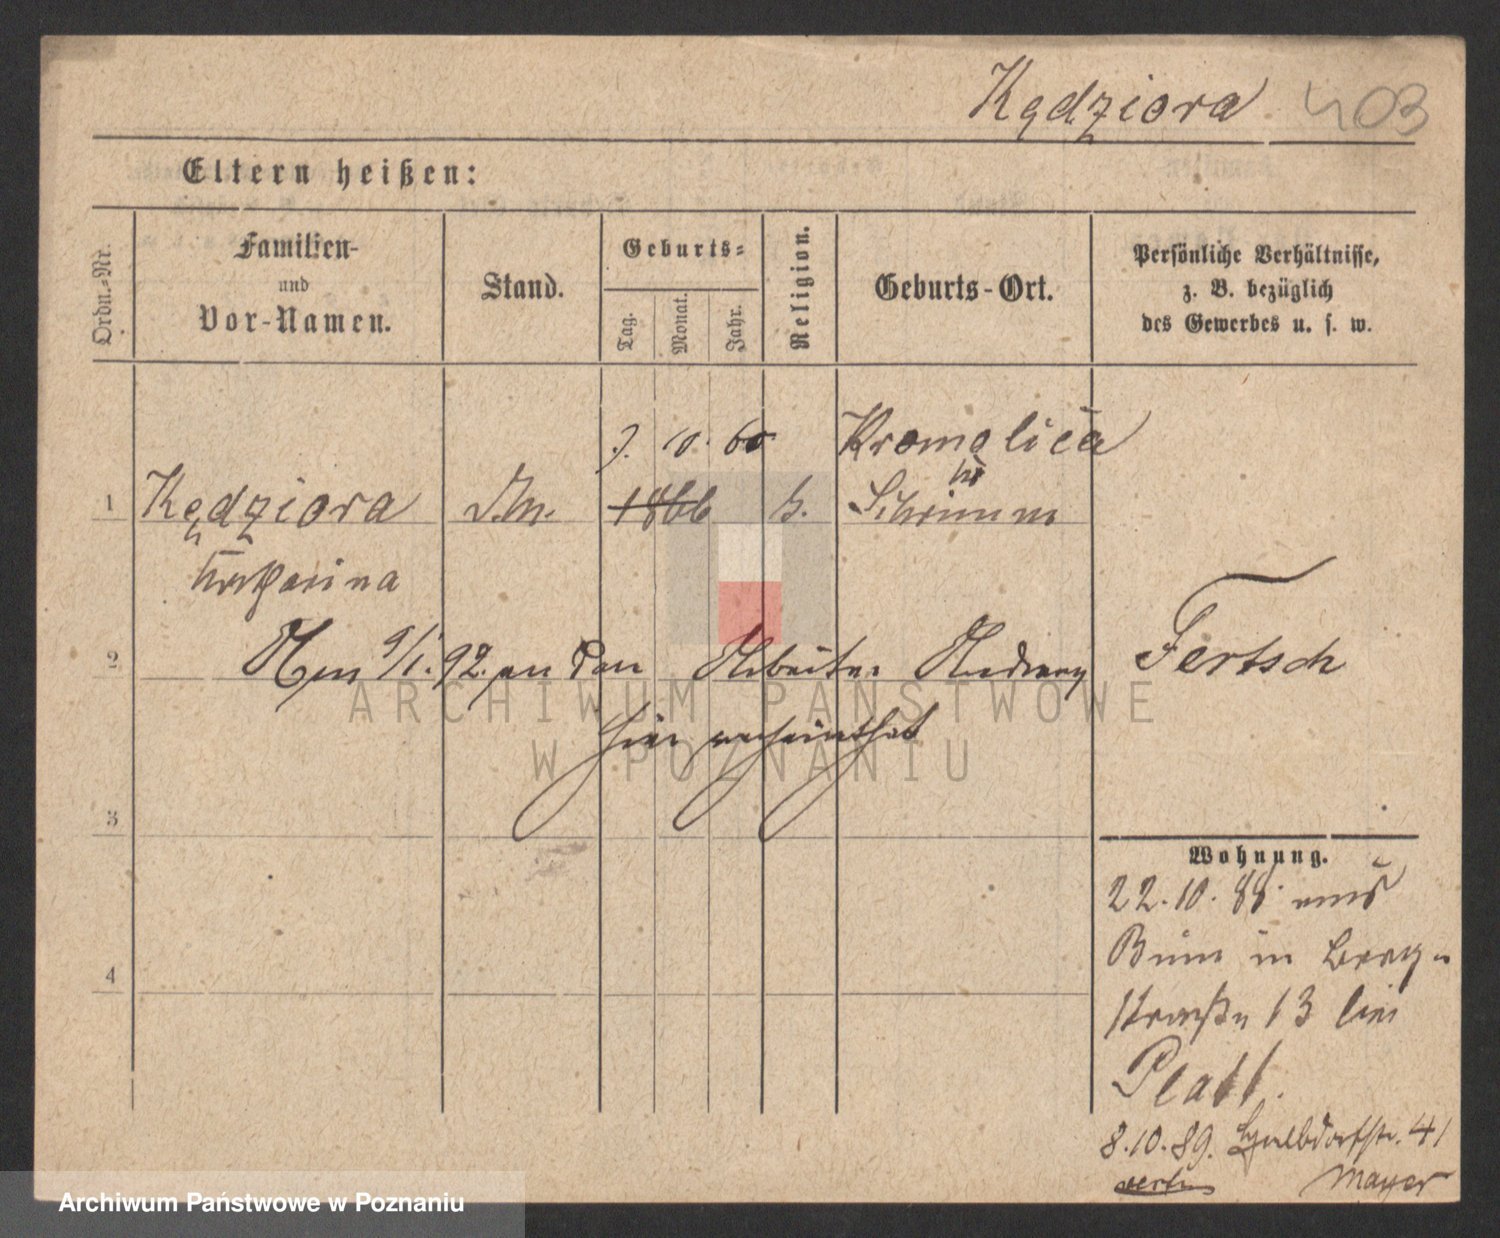 Kędziora 403
Eltern heißen:
Ordn.-Nr.
Familien-
und
Vor-Namen.
Stand.
Geburts-
Tag.
Monat.
Jahr.
Religion.
Geburts-Ort.
Persönliche Verhältnisse,
z. B. bezüglich
des Gewerbes u. s. w.
10. 60
Kromolice
1 Kędziora 1866 Schrimm
Katharina
2 9/1. 92 an den Arbeiter Fertsch
hier verheirathet
3
Wohnung.
22.10.88 aus
Buin in Berg-
4
straße 13 bei
8.10.89. Halbdorfstr. 41
Mayer
ARCHIWUM PAŃSTWOWE
W POZNANIU
Archiwum Państwowe w Poznaniu